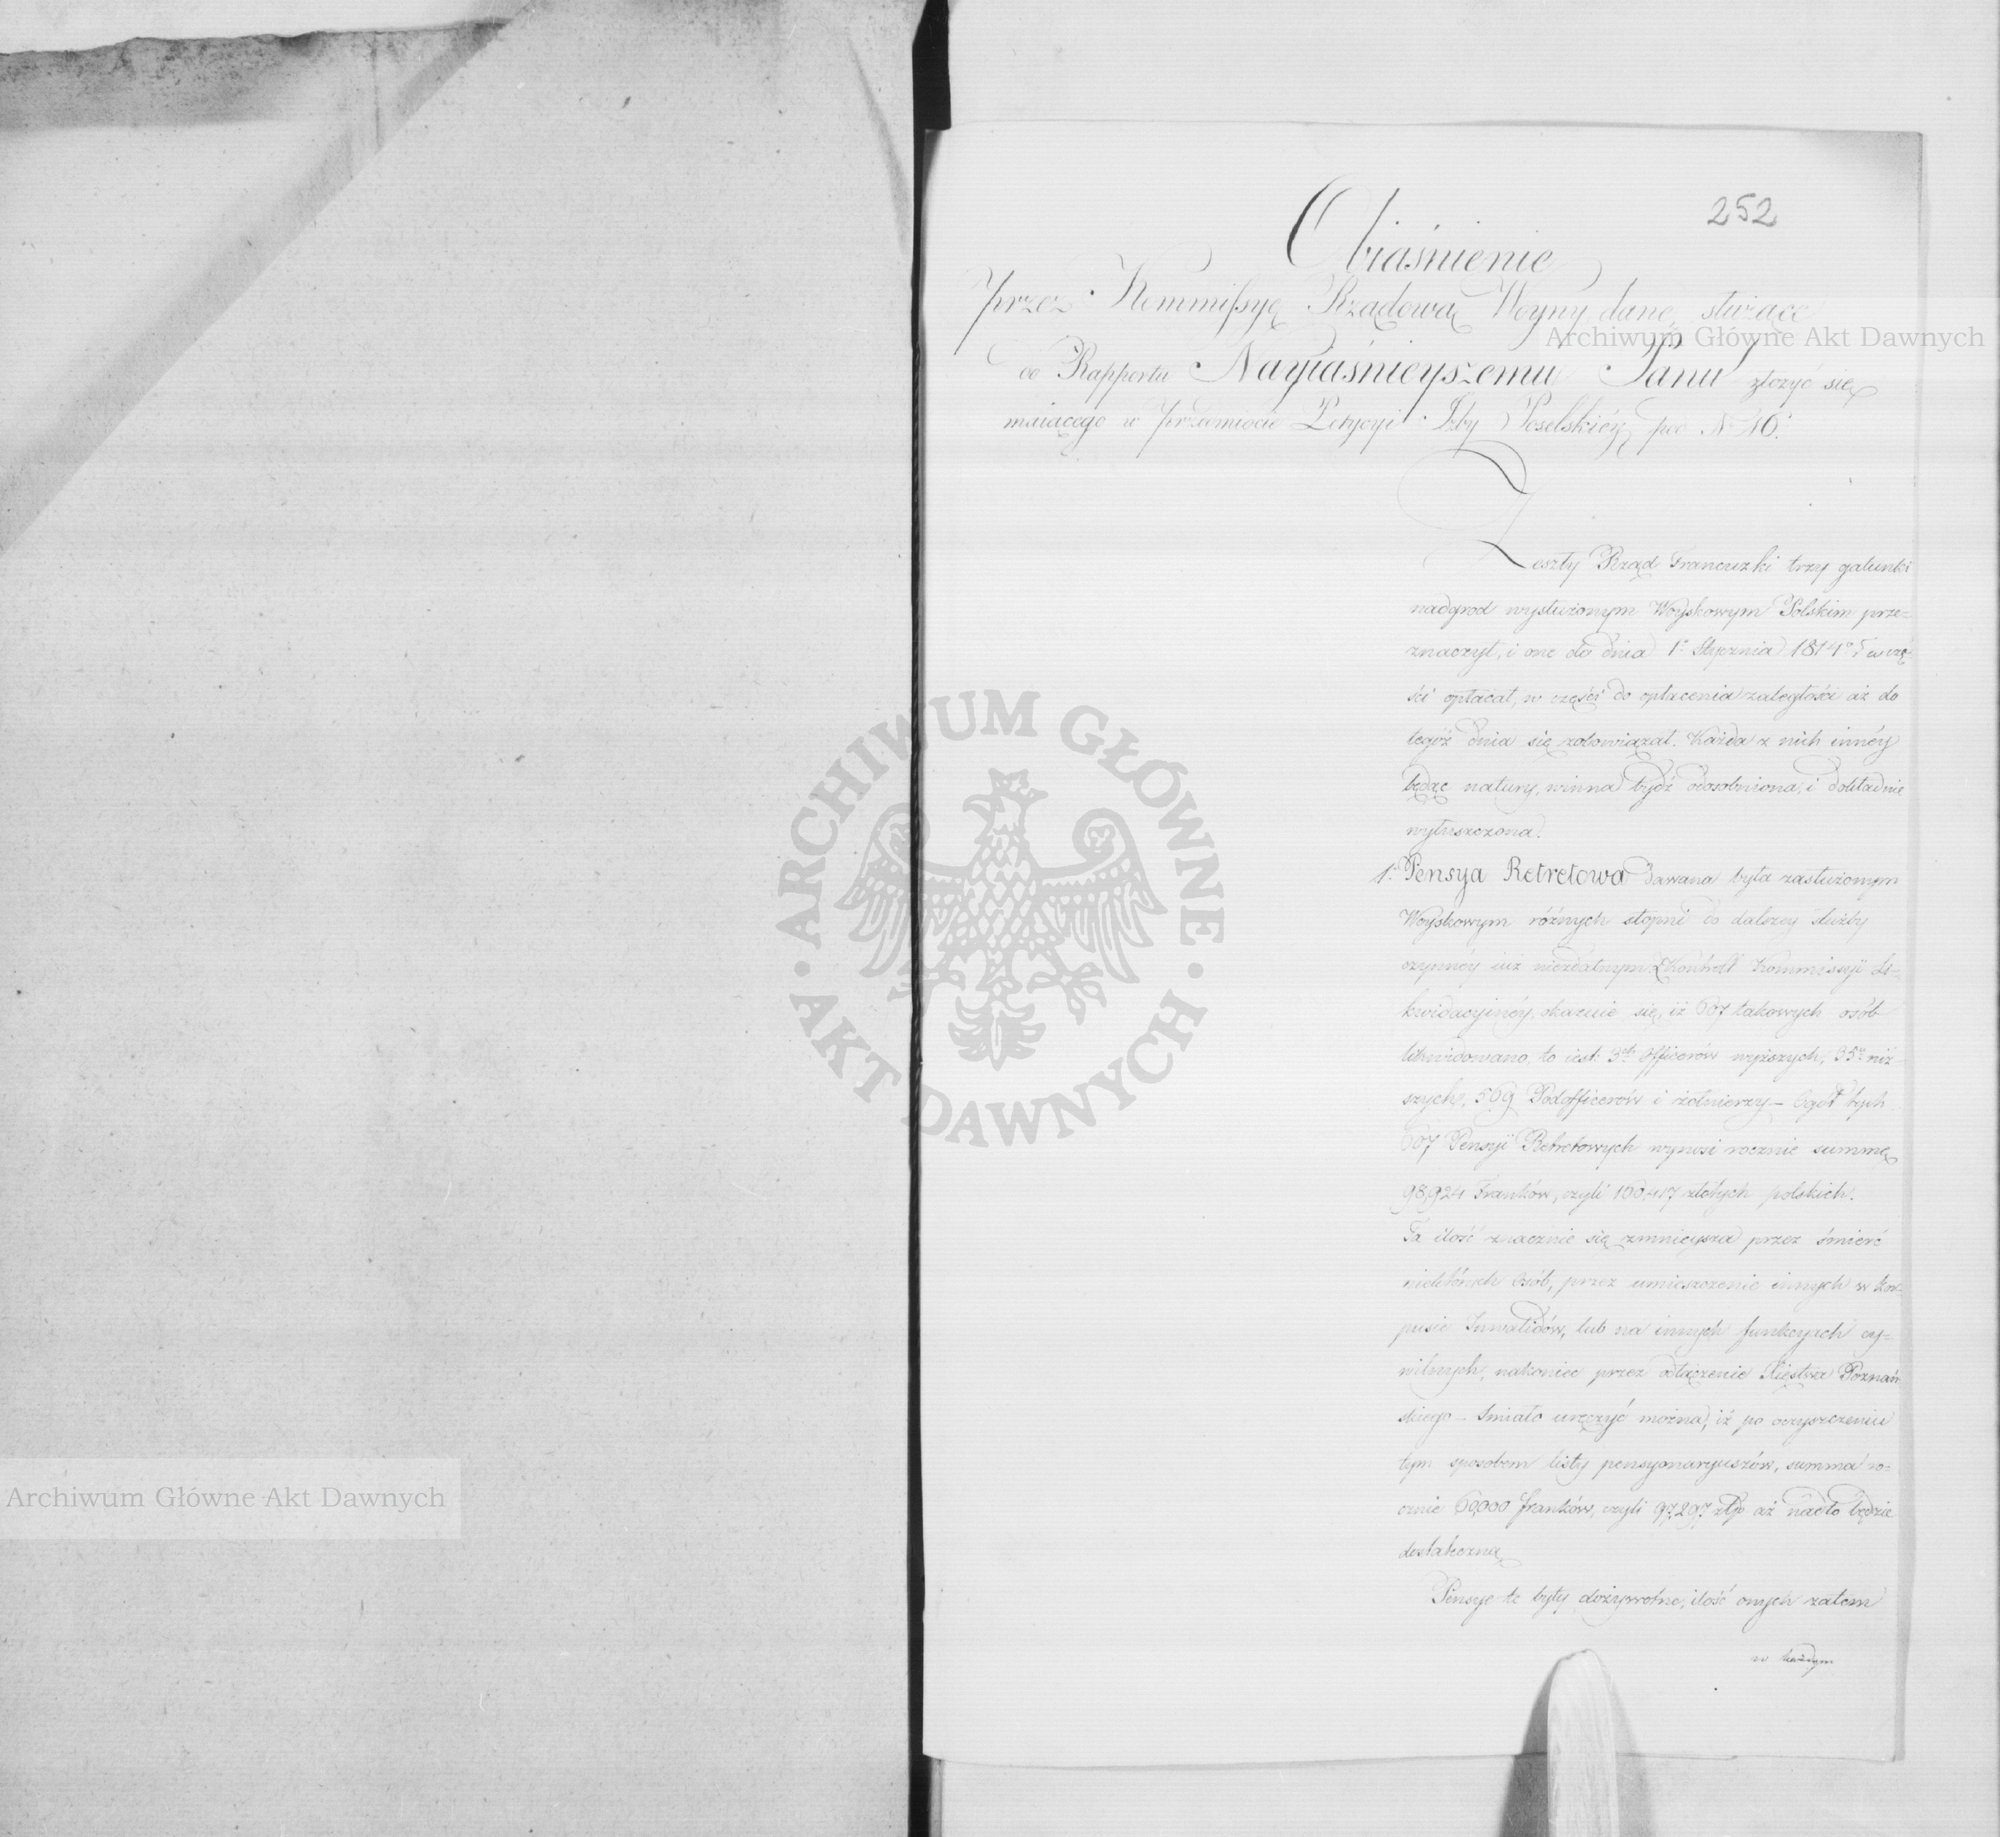 252
Obiaśnienie
przez Kommissyę Rządową Woyny dane, służące
do Rapportu Nayiaśnieyszemu Panu złożyć się
maiącego w przedmiocie Petycyi Izby Poselskiéy pod N°
Zeszły Rząd Francuzki trzy gatunki
nadgrod wysłużonym Woyskowym Polskim prze=
znaczył, i one do dnia 1° Stycznia 1814° r w czę=
ści opłacał, w części do opłacenia zaległości aż do
tegóż dnia się zobowiązał. Każda z nich innéy
będąc natury, winna bydź odosobniona, i dokładnie
wyłuszczona.
1° Pensya Retretowa dawana była zasłużonym
Woyskowym różnych stopni do dalszey służby
czynney iuż niezdatnym. Z Kontroll Kommissyi Li=
kwidacyinéy okazuie się, iż 607 takowych osób
likwidowano, to iest: 3ch Officerów wyższych, 35 niż=
szych, 569 Podofficerów i żołnierzy – Ogół tych
607 Pensyi Retretowych wynosi rocznie summę
98,924 Franków, czyli złotych polskich.
Ta ilość znacznie się zmnieysza przez śmierć
niektórych Osób, przez umieszczenie innych w Kor=
pusie Inwalidów, lub na innych funkcyach cy=
wilnych, nakoniec przez odłączenie Xięstwa Poznań
skiego – śmiało uręczyć można, iż po oczyszczeniu
tym sposobem listy pensyonaryuszów, summa ro=
cznie 60,000 franków, czyli 97,297 złp aż nadto będzie
dostateczną
Pensye te były dożywotne, ilość onych zatem
w każdym
Archiwum Główne Akt Dawnych
ARCHIWUM GŁÓWNE AKT DAWNYCH
Archiwum Główne Akt Dawnych